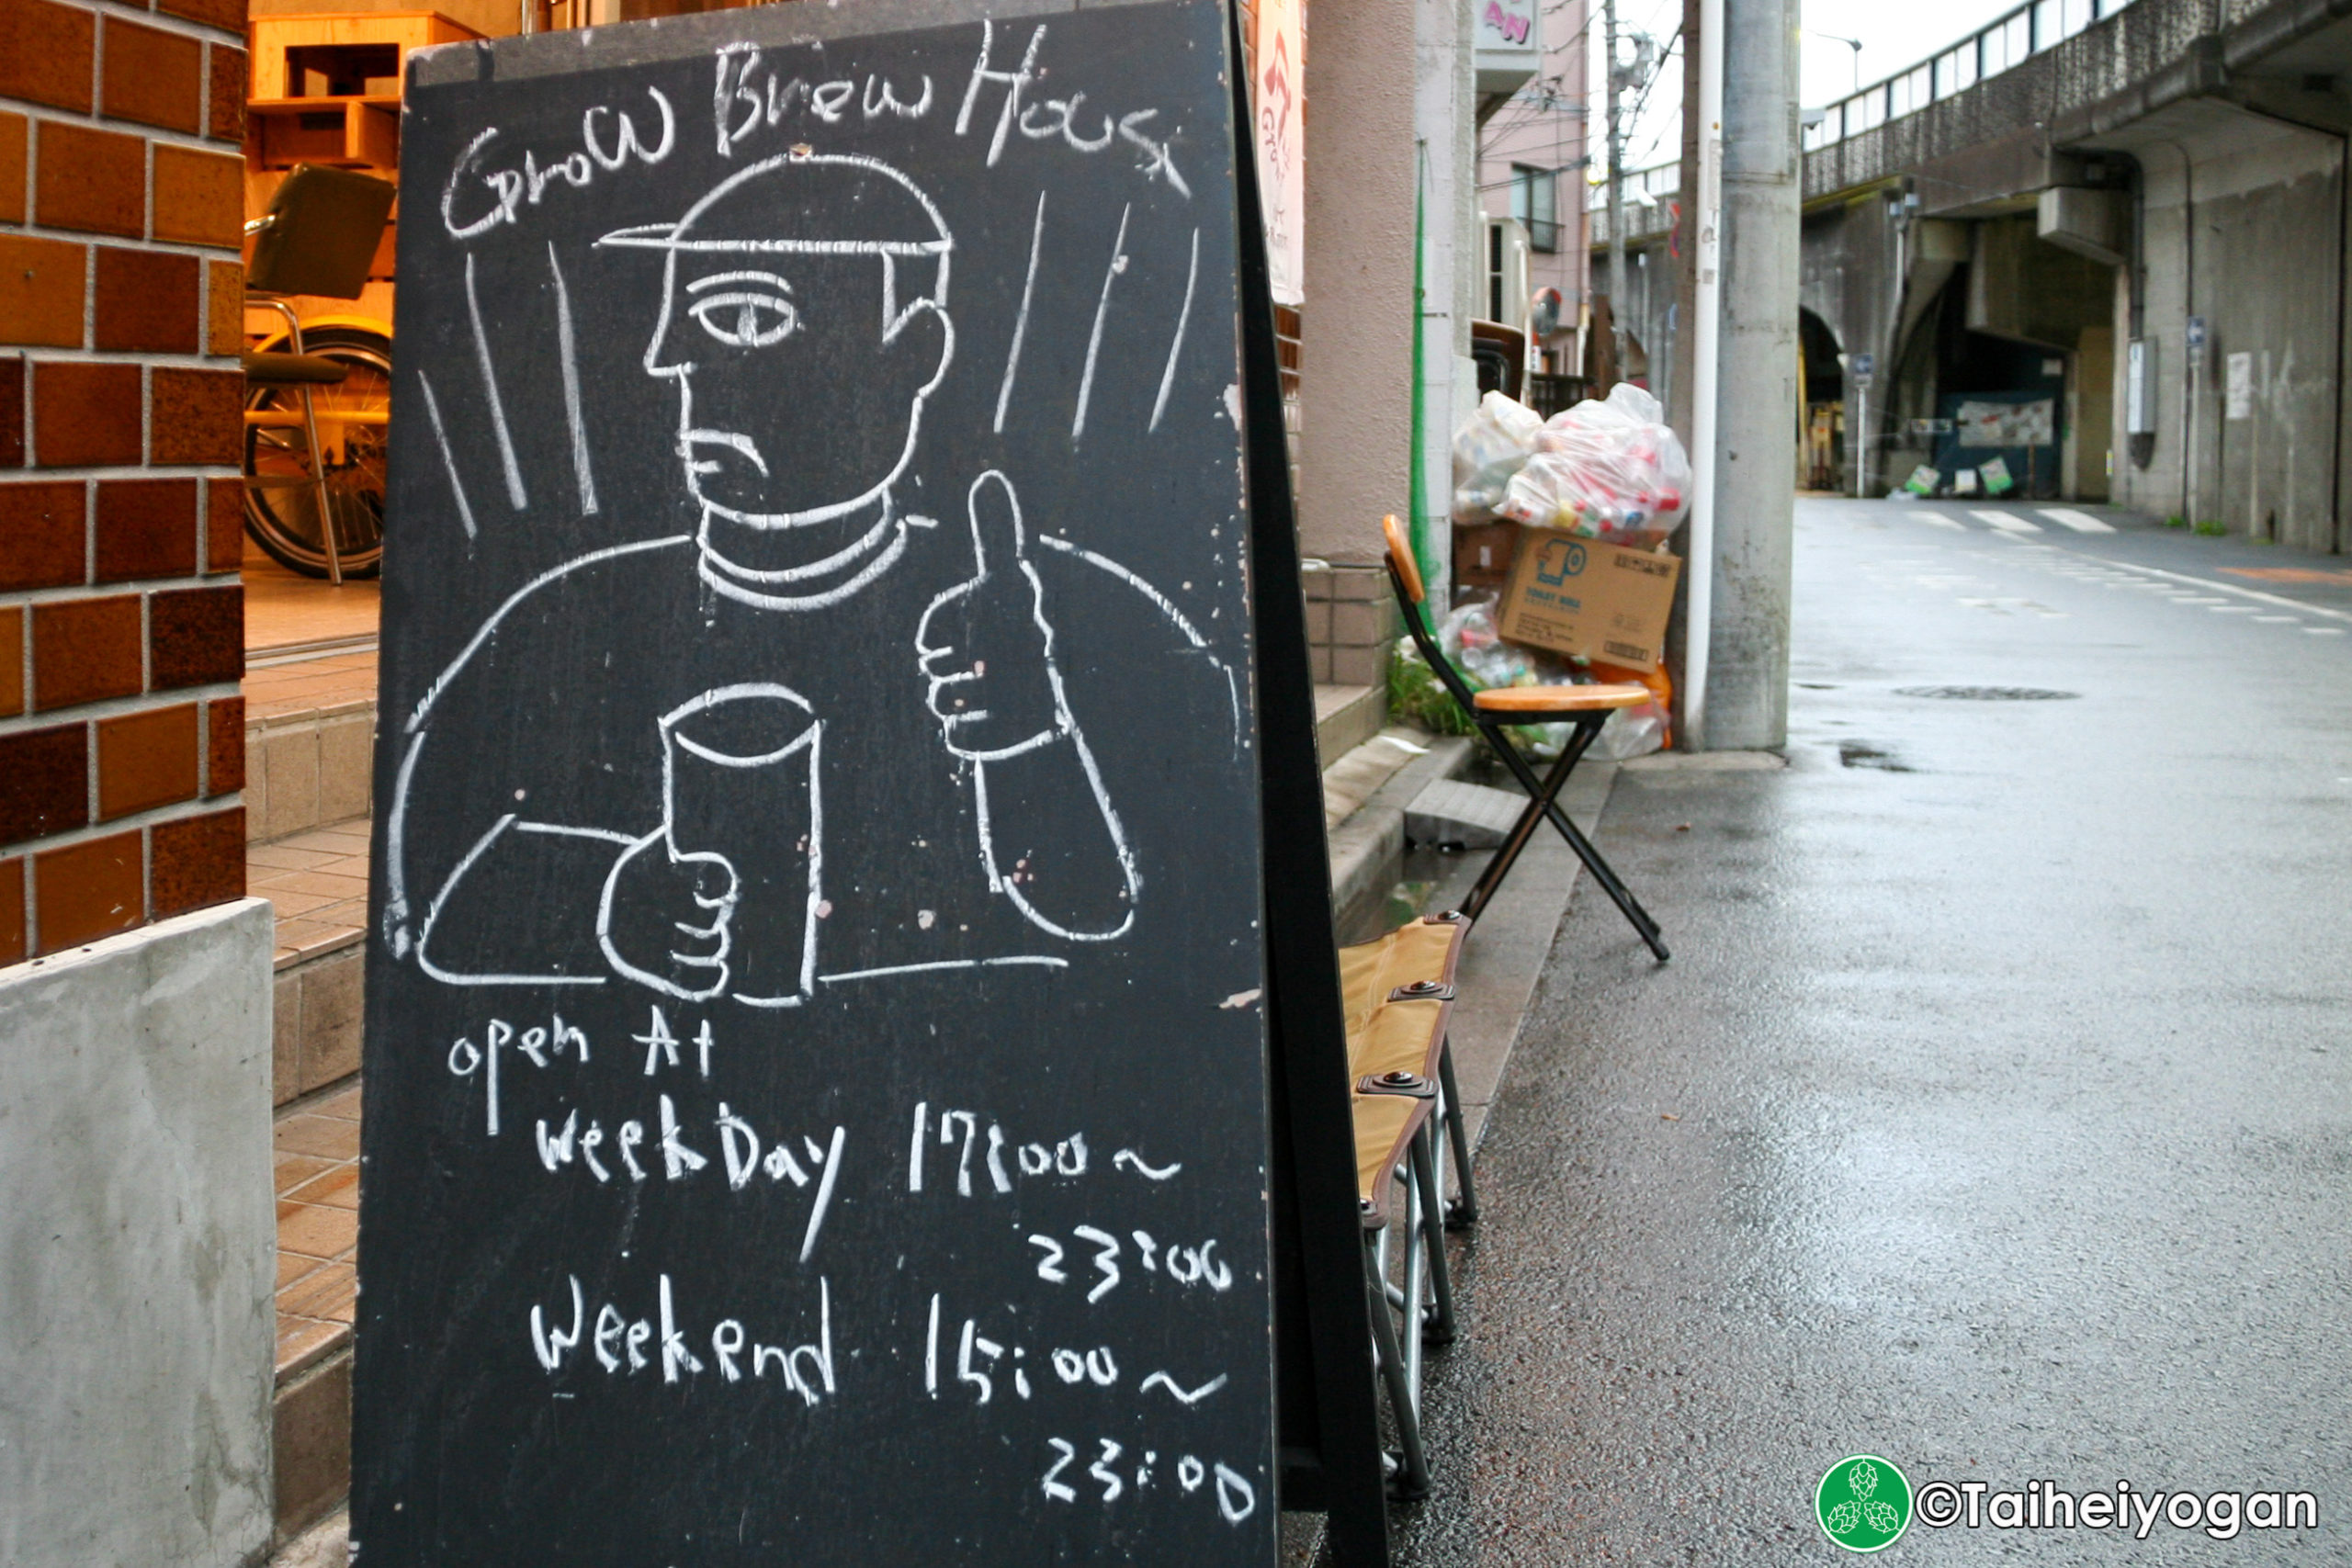 GroW Brew House
open At
weekDay 17:00~
23:00
Weekend 15:00~
23:00
AN
TOILET ROLL
©Taiheiyogan